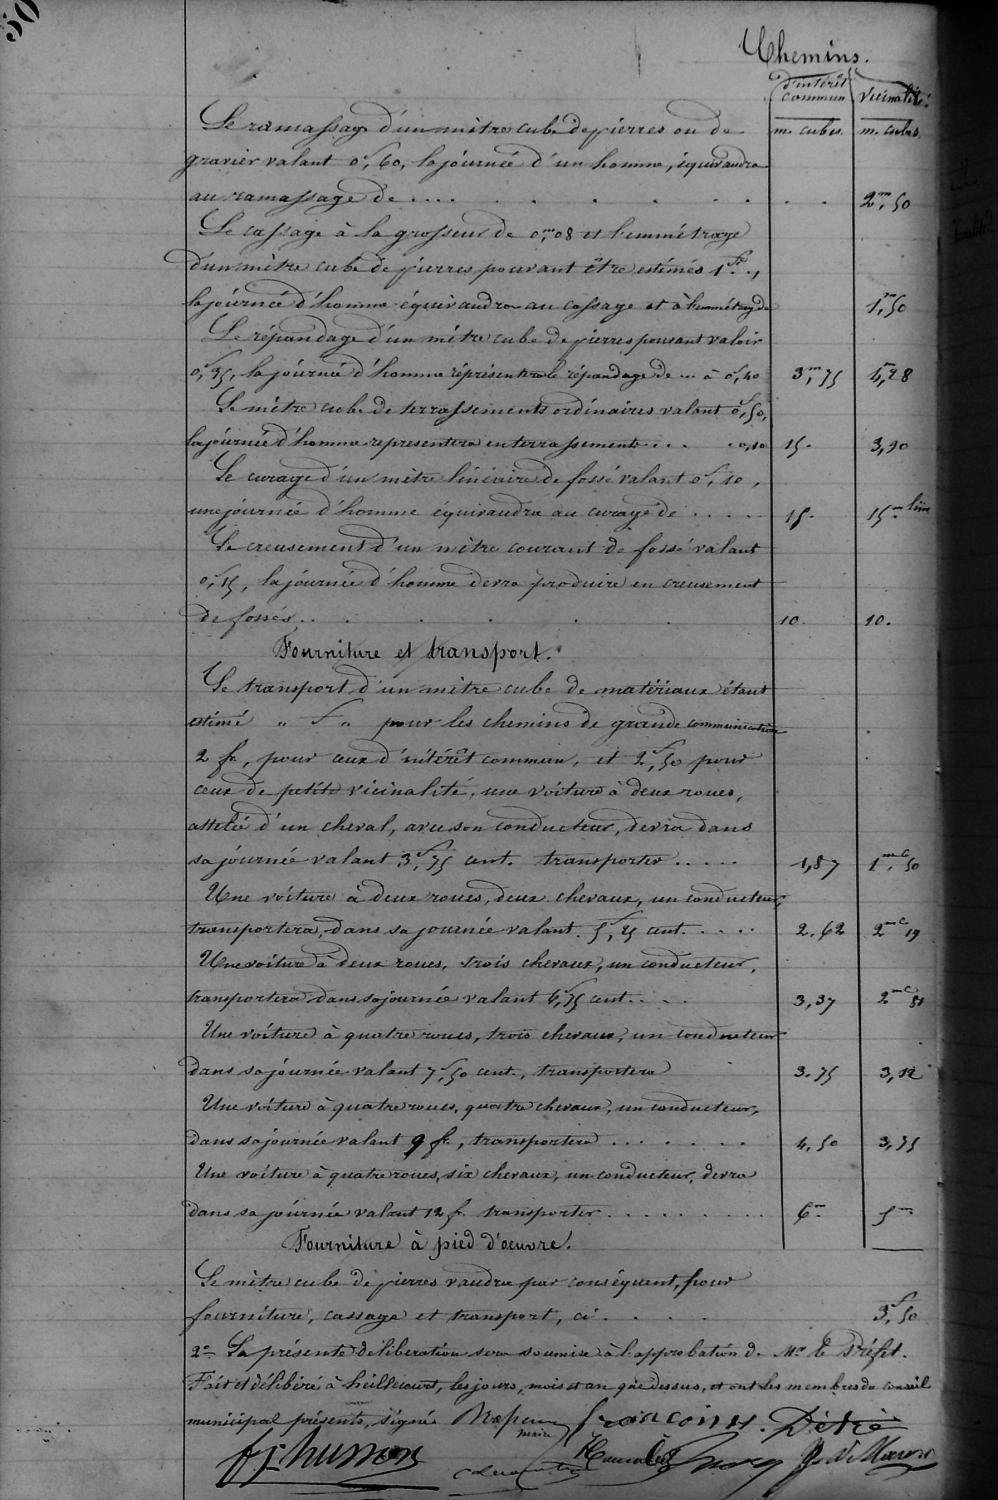 50
Chemins.
d'intérêt commun
Vicinalité.
Le ramassage d'un mètre cube de pierres ou de m. cubes. m. cubes.
gravier valant 0f,60, la journée d'un homme, équivaudra
au ramassage de . . . . . . . . 2m,50
Le cassage à la grosseur de 0m,08 et l'emmétrage
d'un mètre cube de pierres pouvant être estimés 1fr.,
la journée d'homme équivaudra au cassage et à l'emmétrage de 1m,50
Le répandage d'un mètre cube de pierres pouvant valoir
0f,35, la journée d'homme représentera le répandage de ... à 0f,40 3m,75 4m,28
Le mètre cube de terrassements ordinaires valant 0f,50,
la journée d'homme representera en terrassements . . . . 0,10 15. 3,90
Le curage d'un mètre linéaire de fossé valant 0f,10,
une journée d'homme équivaudra au curage de . . . . 15. 15m lin
Le creusement d'un mètre courant de fossé valant
0f,15, la journée d'homme devra produire en creusement
de fossés . . . . . . 10. 10.
Fourniture et transport.
Le transport d'un mètre cube de matériaux étant
estimé " f " pour les chemins de grande communication
2 fr, pour ceux d'intérêt commun, et 2f,50 pour
ceux de petite vicinalité, une voiture à deux roues,
attelée d'un cheval, avec son conducteur, devra dans
sa journée valant 3f,75 cent. transporter . . . . . 1,87 1mc,50
Une voiture à deux roues, deux chevaux, un conducteur,
transportera, dans sa journée valant 5f,25 cent. . . . . 2,62 2mc 19
Une voiture à deux roues, trois chevaux, un conducteur,
transportera dans sa journée valant 6f,75 cent. . . . 3,37 2mc 81
Une voiture à quatre roues, trois chevaux, un conducteur
dans sa journée valant 7f,50 cent., transportera 3.75 3,12
Une voiture à quatre roues, quatre chevaux, un conducteur,
dans sa journée valant 9 fr., transportera . . . . . . . 4,50 3,75
Une voiture à quatre roues, six chevaux, un conducteur, devra
dans sa journée valant 12 f. transporter . . . . . . . . . 6m 5m
Fourniture à pied d'œuvre.
Le mètre cube de pierres vaudra par conséquent, pour
fourniture, cassage et transport, ci . . . . . 3f,50
2° La présente délibération sera soumise à l'approbation de Mr le Préfet.
Fait et délibéré à heillecourt, les jours, mois et an que dessus, et ont les membres du conseil
municipal présents, signé
maire
husson